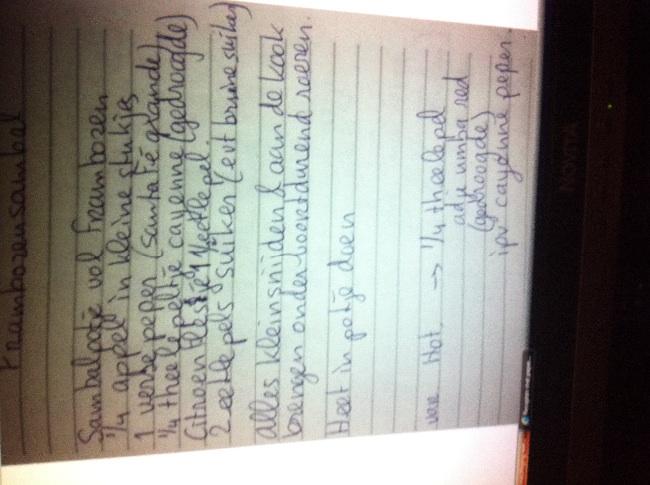 Frambozensambal
Sambalpotje vol Frambozen
1/4 appel in kleine stukjes
1 verse peper (santa fé grande)
1/4 theelepeltje cayenne (gedroogde)
Citroen 1 eetlepel
2 eetlepels suiker (evt bruine suiker)
alles kleinsnijden & aan de kook
brengen onder voortdurend roeren.
Heet in potje doen
Hot → 1/4 theelepel
adjumba red
(gedroogde)
ipv cayenne peper.
NOVITA